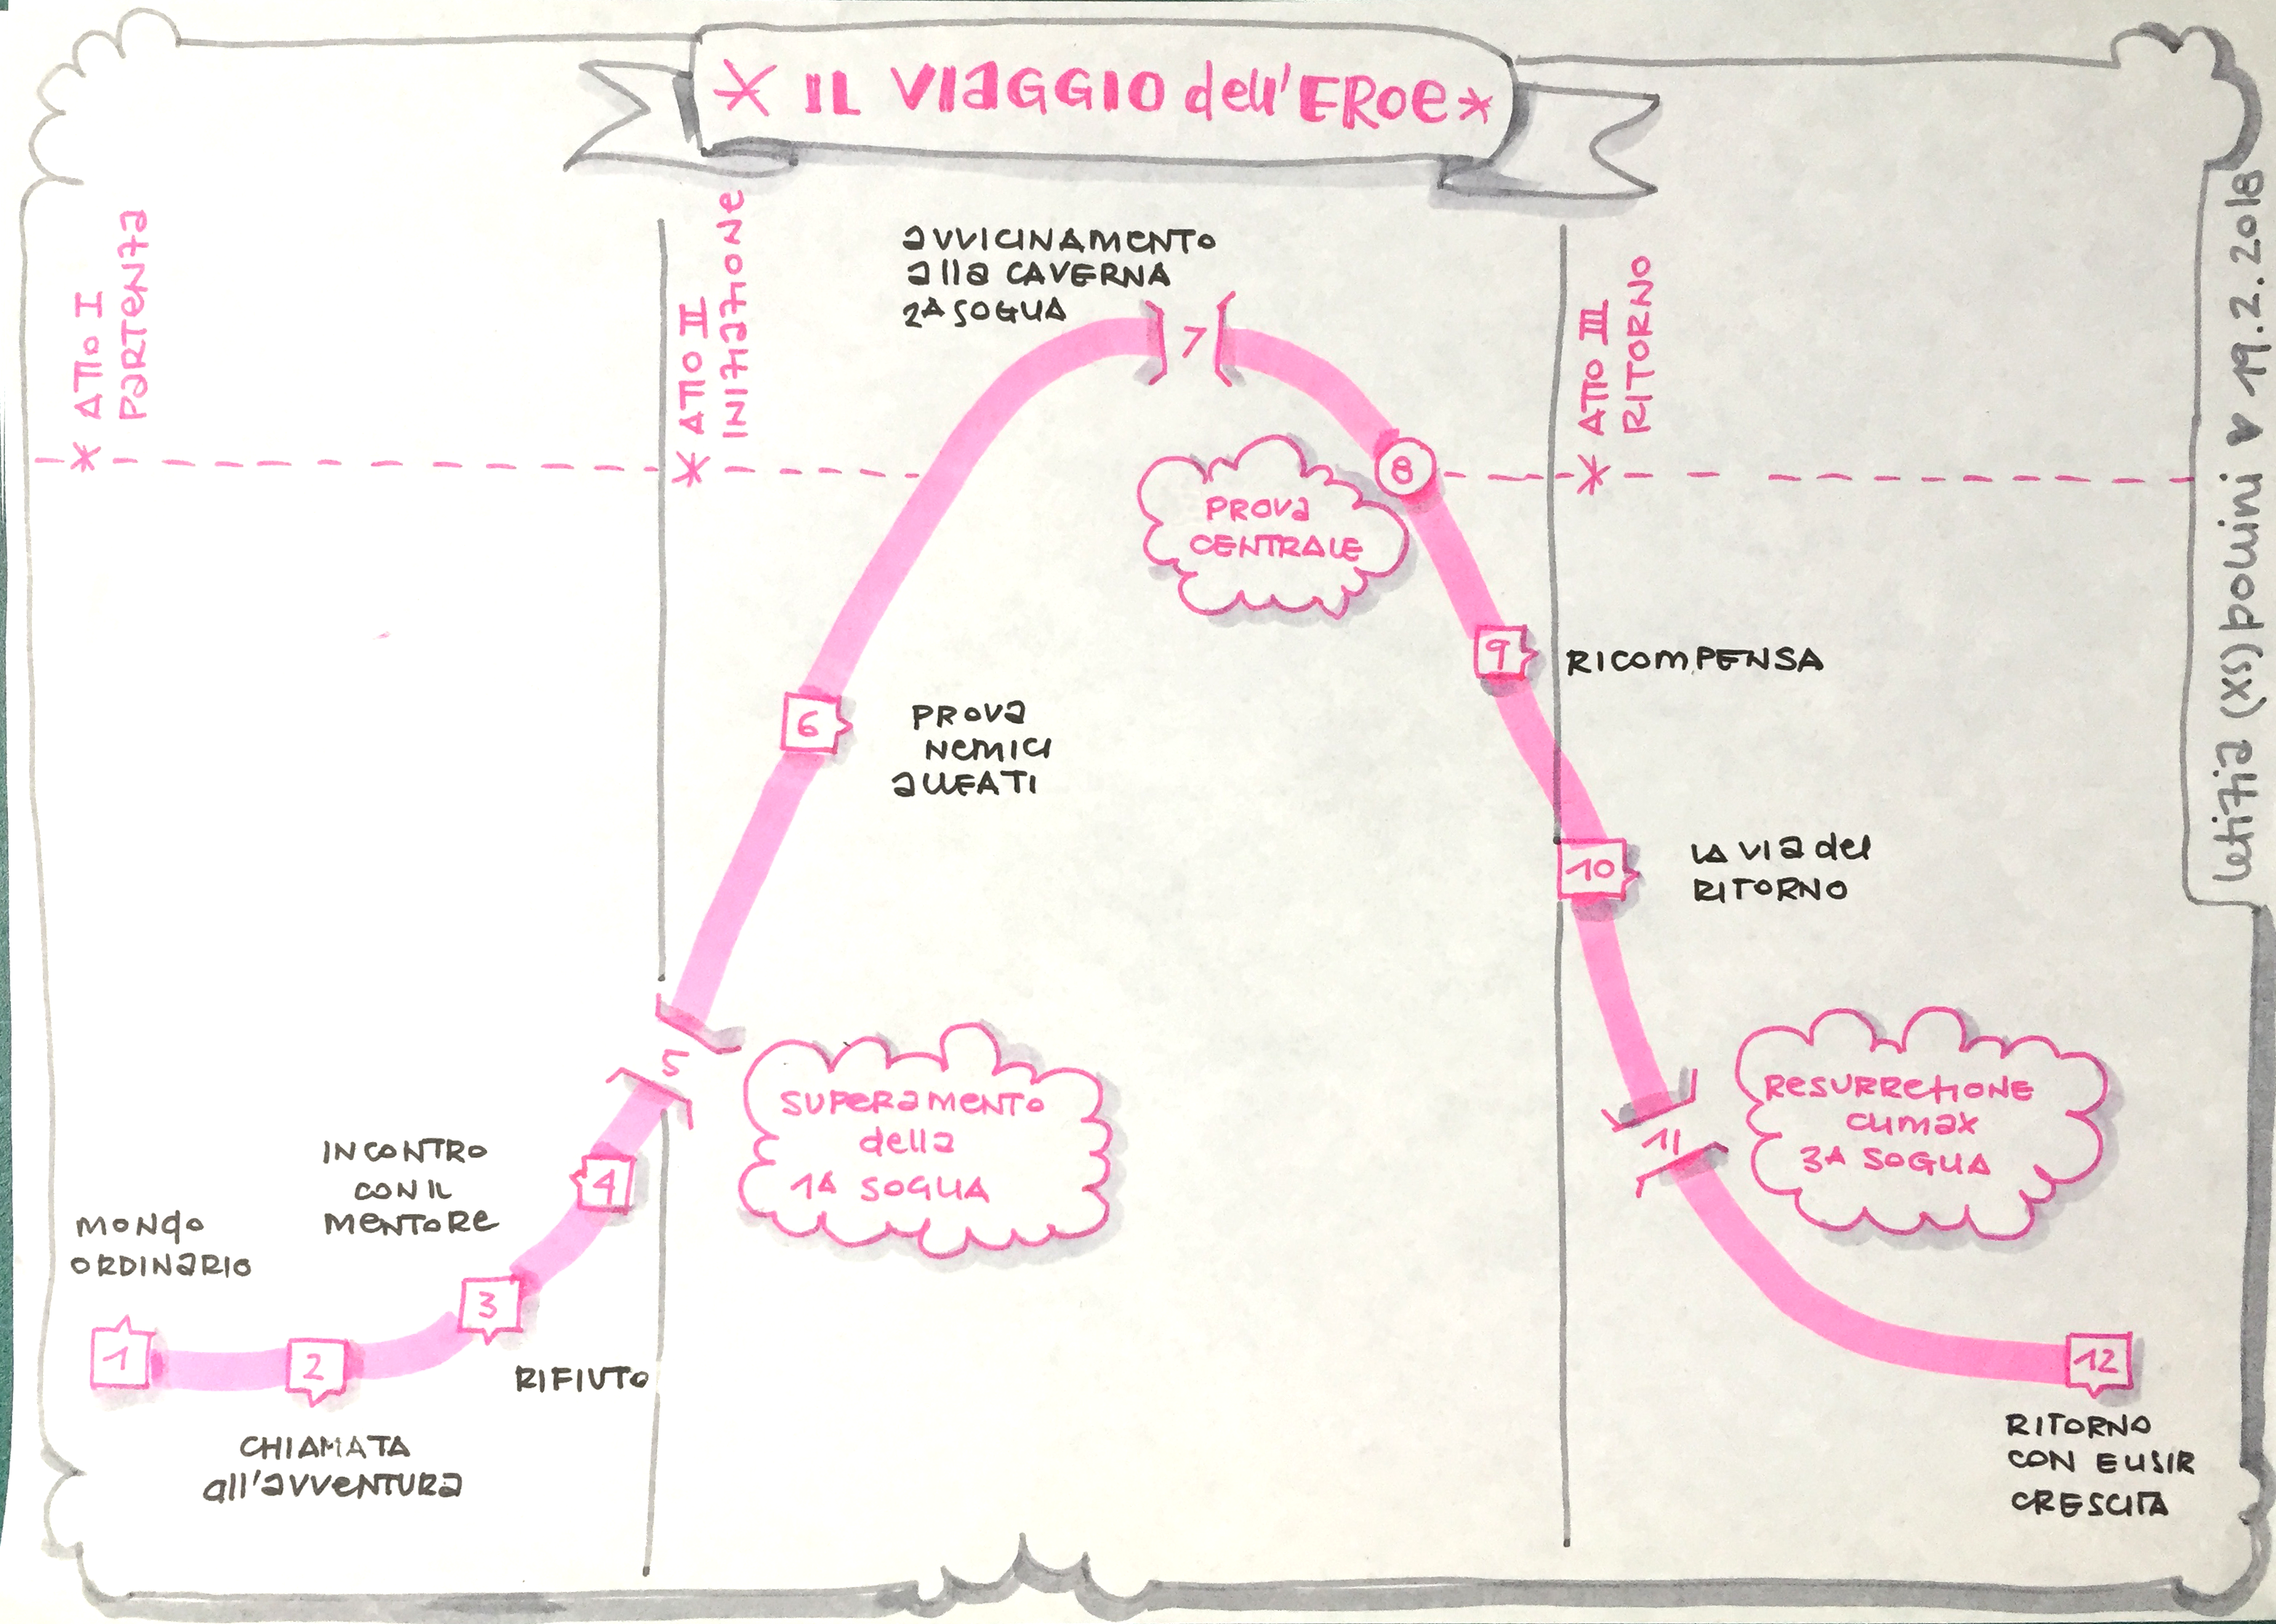 * IL VIAGGIO dell'EROE *
* ATTO I
PARTENZA
* ATTO II
INIZIAZIONE
* ATTO III
RITORNO
1
MONDO
ORDINARIO
2
CHIAMATA
all'AVVENTURA
3
RIFIUTO
4
INCONTRO
CON IL
MENTORE
5
SUPERAMENTO
della
1A SOGLIA
6
PROVA
NEMICI
ALLEATI
7
AVVICINAMENTO
alla CAVERNA
2A SOGLIA
8
PROVA
CENTRALE
9
RICOMPENSA
10
LA VIA del
RITORNO
11
RESURREZIONE
CLIMAX
3A SOGLIA
12
RITORNO
CON ELISIR
CRESCITA
letizia (xs) pollini ♥ 19.2.2018